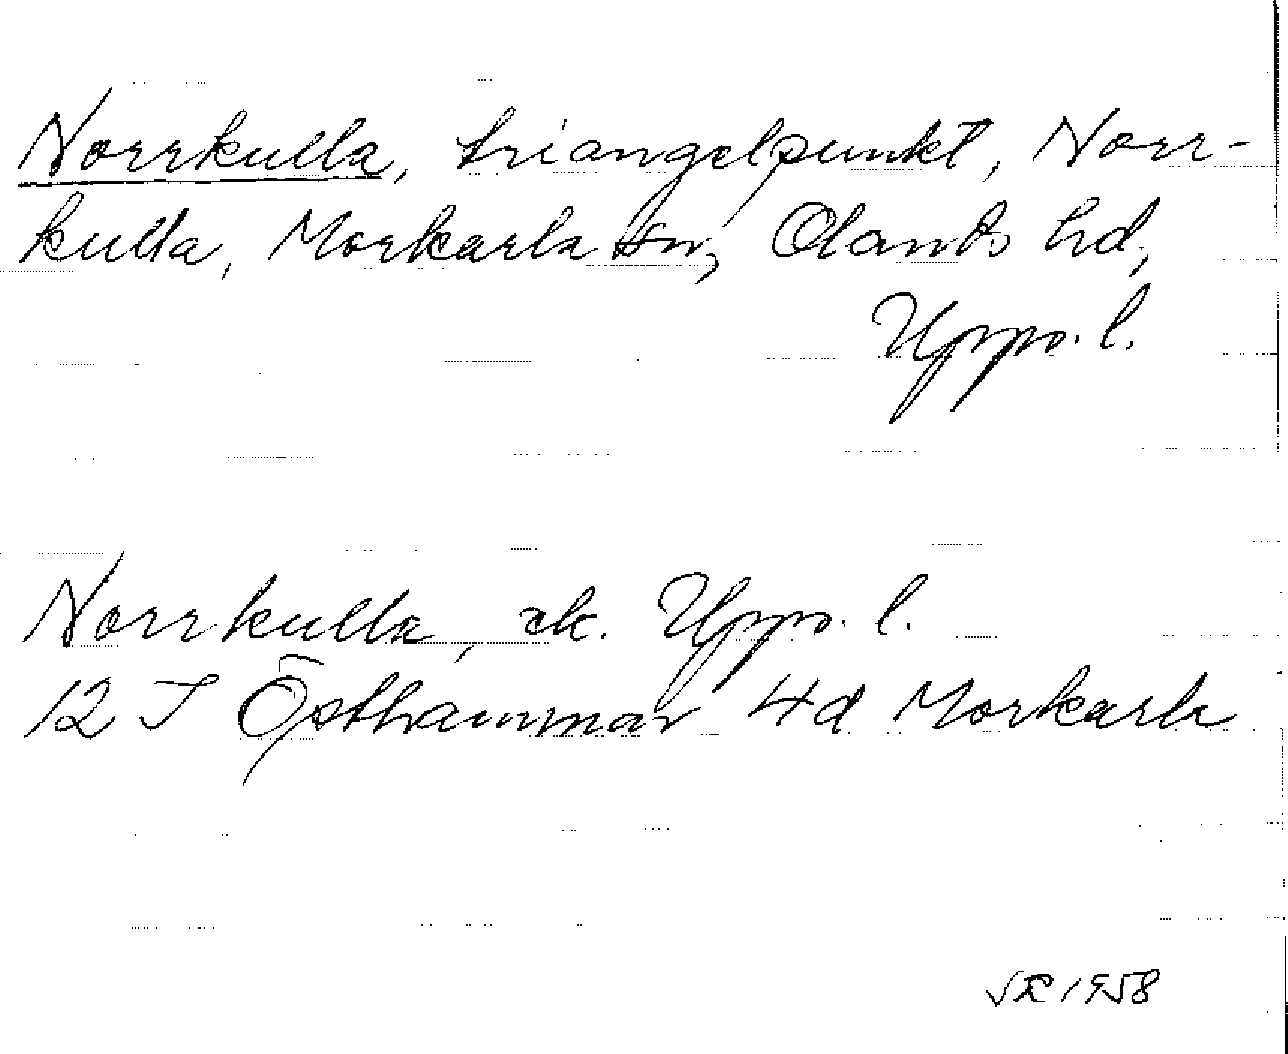 Norrkulla, triangelpunkt, Norr-
kulla, Morkarla sn, Olands hd,
Upps. l.
Norrkulla, ek. Upps. l.
12 I Östhammar 4d Morkarla
1958